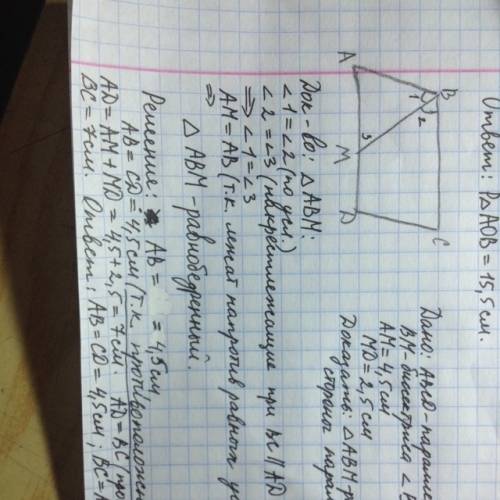 Ответ: P△AOB = 15,5 см.
B
C
A
M
D
1
2
3
Дано: ABCD-парал
BM-биссектриса ∠
AM=4,5см
MD=2,5см
Доказать: △ABM-
стороны парал
Док-во: △ABM:
∠1=∠2 (по усл.)
∠2=∠3 (накрестлежащие при BC ∥ AD
⇒ ∠1=∠3
AM=AB (т.к. лежат напротив равных уг
⇒
△ABM-равнобедренный.
Решение: AB = = 4,5см
AB=CD=4,5см (т.к. противоположн
AD=AM+MD=4,5+2,5=7см. AD=BC (про
BC=7см. Ответ: AB=CD=4,5см, BC=